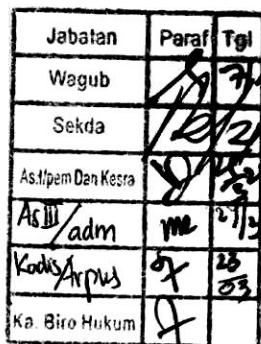 Jabatan Paraf Tgl
Wagub
Sekda
As.I/pem Dan Kesra
As III/adm
Kadis Arpus 23/03
Ka. Biro Hukum